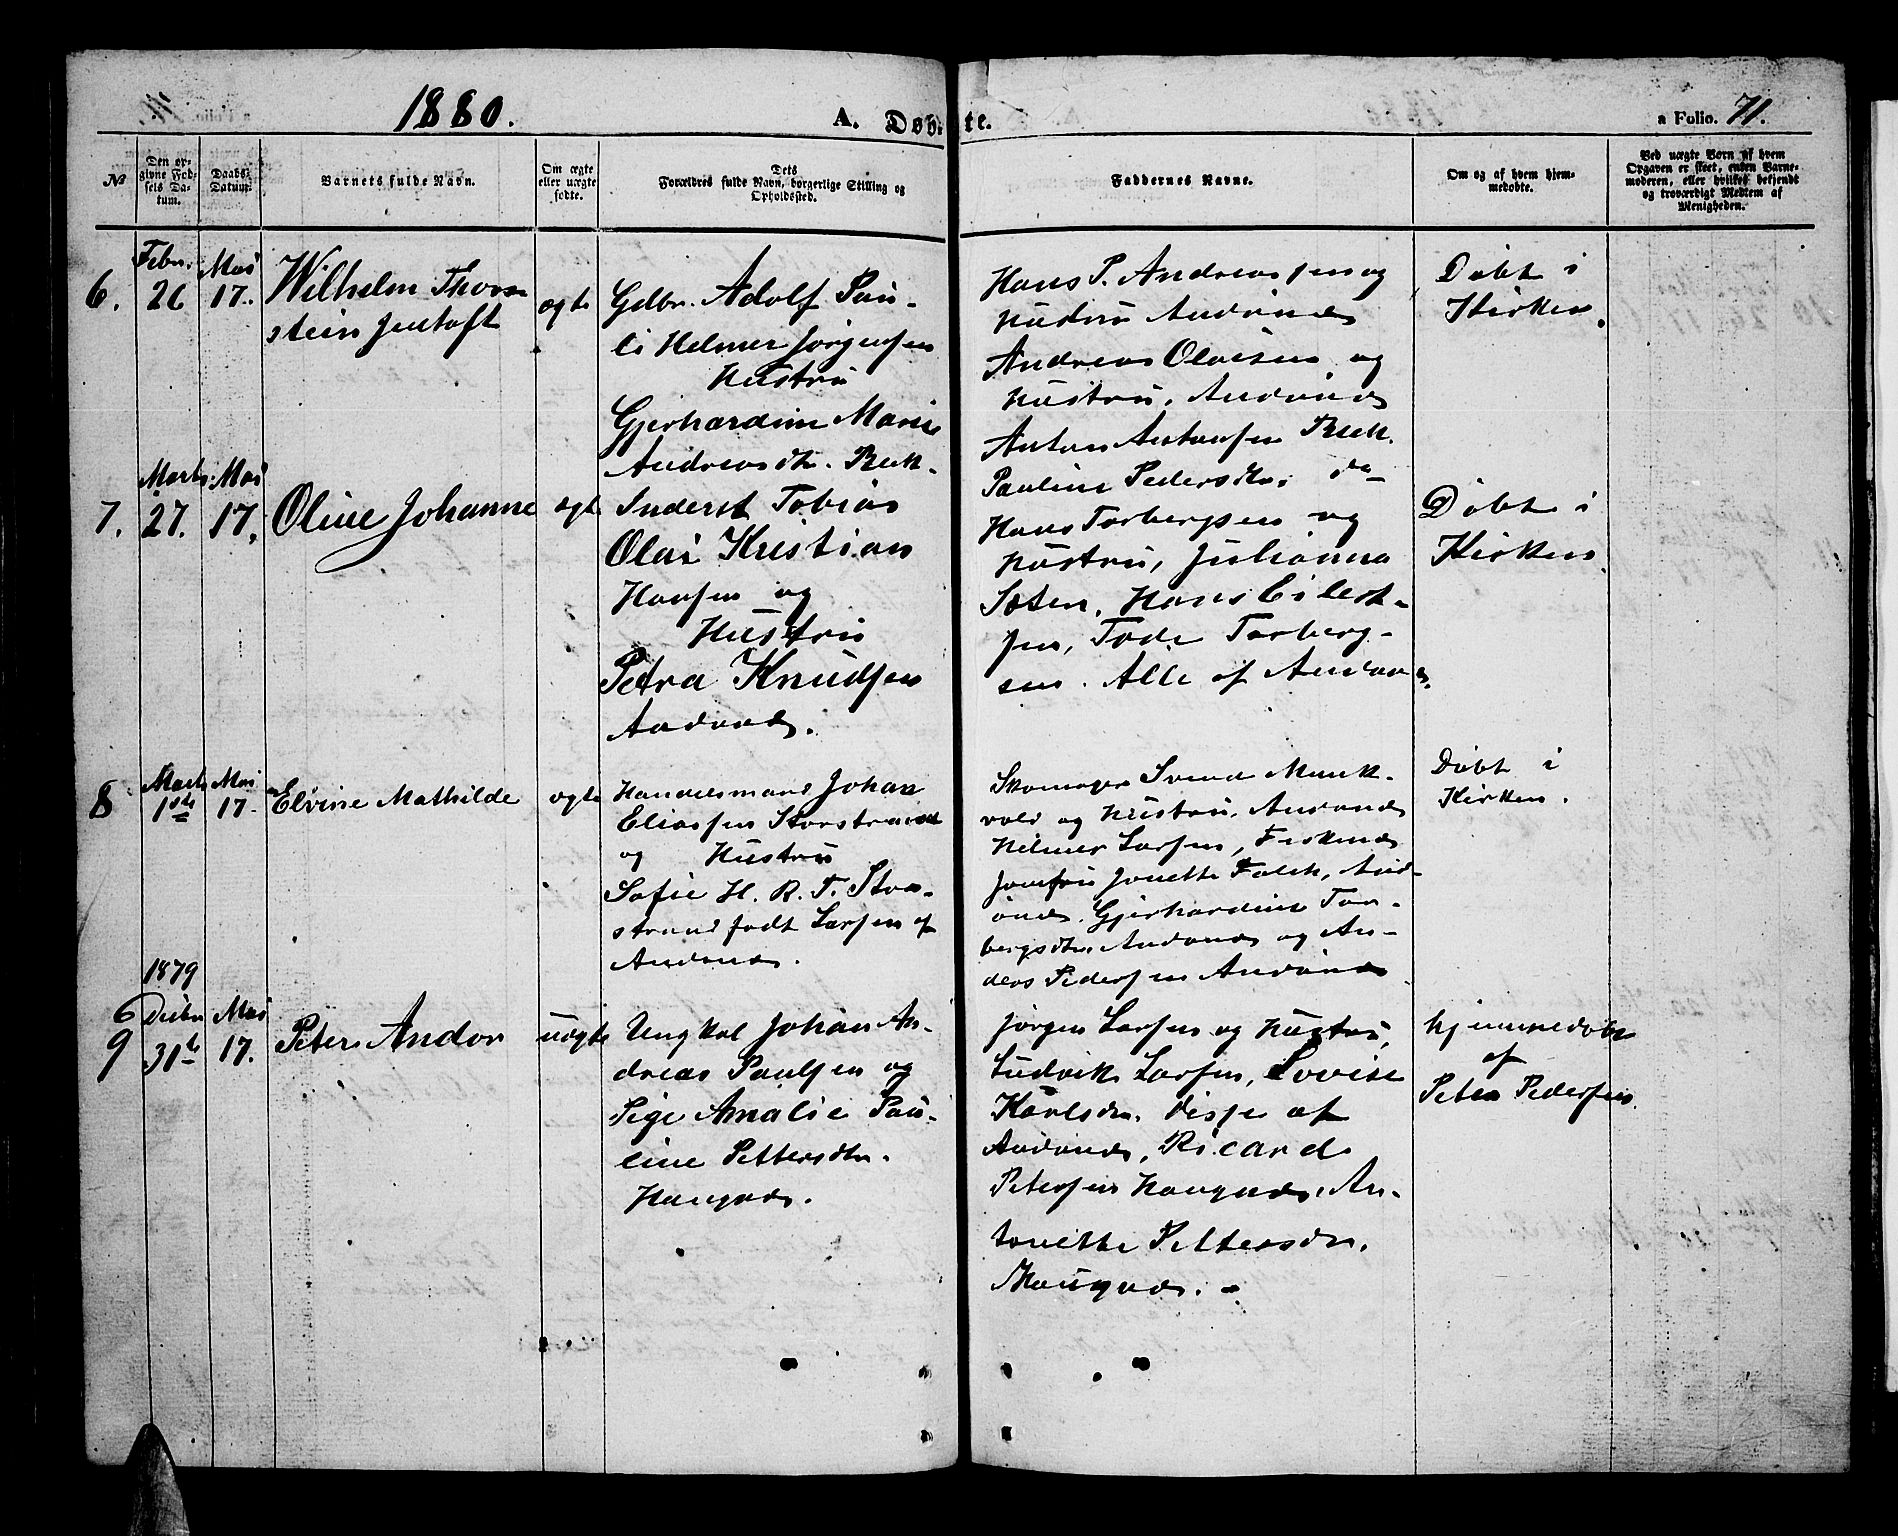 1880.
A. Døb-
te.
a Folio. 71.
№
Den op-
givne Fød-
sels Da-
tum.
Daabs-
Datum.
Barnets fulde Navn.
Om ægte
eller uægte
fødte.
Dets
Forældres fulde Navn, borgerlige Stilling og
Opholdssted.
Faddernes Navne.
Om og af hvem hjem-
medøbte.
Ved uægte Børn af hvem
Opgaven er skeet, enten Barne-
moderen, eller hvilket bekjendt
og troværdigt Medlem af
Menigheden.
6.
Febr.
26
Mai
17.
Wilhelm Thor-
stein Jentoft
ægte
Gdbr. Adolf Pau-
li Helmer Jørgensen
Hustru
Gjerhardine Marie
Andreasdtr. Buk-
Hans P. Andreassen og
Hustru Andønes
Andreas Olaisen og
Hustru, Andønes
Anton Antonsen Buk.
Pauline Pedersdtr. do
Døbt i
Kirken.
7.
Marts
27.
Mai
17.
Oline Johanne
ægte
Inderst Tobias
Olai Kristian
Hansen og
Hustru
Petra Knudsen
Andønes.
Hans Torbergsen og
Hustru, Julianna
Hans Eilert-
sen, Tode Torberg-
sen. Alle af Andønes.
Døbt i
Kirken.
8
Marts
1ste
Mai
17.
Elvine Mathilde
ægte
Handelsmand Johan
Eliassen Storstrand
og Hustru
Sofie H. R. T. Stor-
strand født Larsen af
Andønes.
Skomager Svend Munk-
vold og Hustru, Andønes
Hilmer Larsen, Fiskenes
Jomfru Jonette Falch, And-
ønes. Gjerhardine Tor-
bergsdtr Andønes og An-
ders Pedersen Andønes
Døbt i
Kirken.
6
9
1879
Decbr
31te
Mai
17.
Peter Andor
uægte
Ungkal Johan An-
dreas Paulsen og
Pige Amalie Pau-
line Pettersdtr.
Haugnes.
Jørgen Larsen og Hustru,
Ludvik Larsen, Lovise
Karlsdtr. disse af
Andønes, Ricard
Petersen Haugnes, An-
tonette Pettersdtr.
Haugnes.
hjemmedøbt
af
Peter Pedersen.